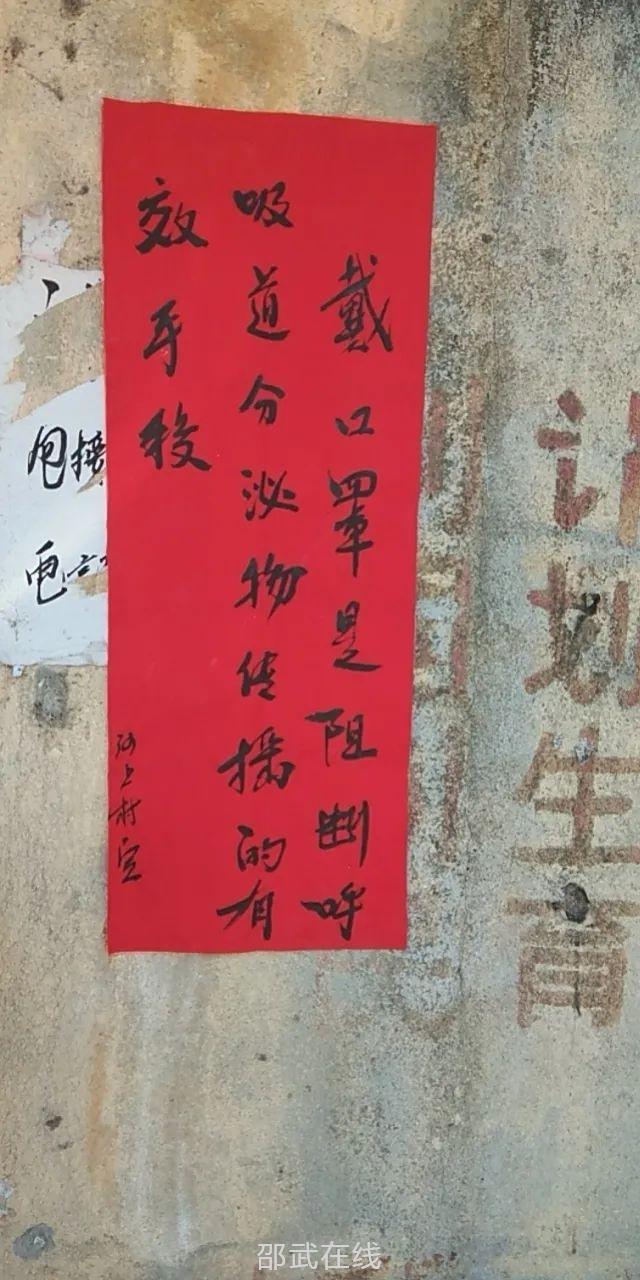 计划生育
戴口罩是阻断呼
吸道分泌物传播的有
效手段
河上村宣
包接
电
邵武在线